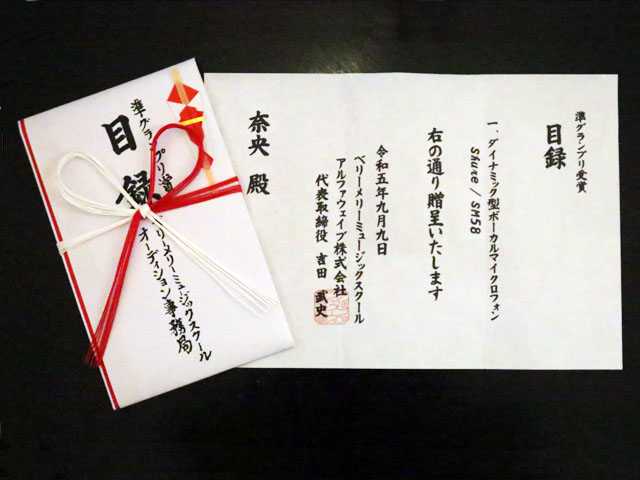 準グランプリ受賞
目録
一、ダイナミック型ボーカルマイクロフォン
Shure / SM58
右の通り贈呈いたします
令和五年九月九日
ベリーメリーミュージックスクール
アルファウェイブ株式会社
代表取締役 吉田 武史
奈央 殿
準グランプリ賞
目録
リーメリーミュージックスクール
オーディション事務局